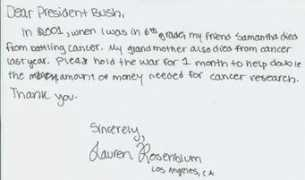 Dear President Bush,
In 2001, when I was in 6th grade, my friend Samantha died
from battling cancer. My grandmother also died from cancer
last year. Please hold the war for 1 month to help double
the amount of money needed for cancer research.
Thank you.
Sincerely,
Lauren Rosenblum
Los Angeles, CA